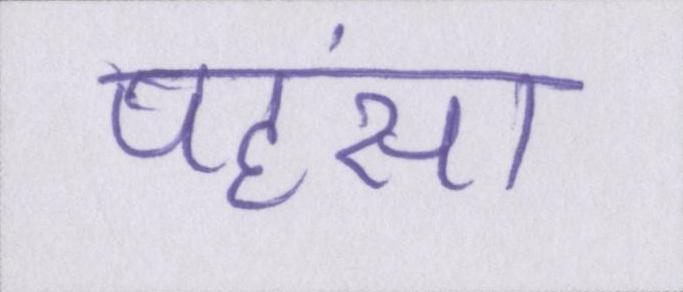 पहंसा